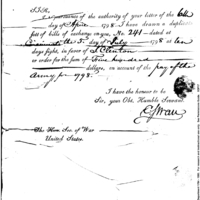 SIR,
of the authority of your letter of the 6th
day of April 1798 I have drawn a duplicate
sett of bills of exchange on you, No. 241 - dated at
Cincinnati the 5 day of July 1798 at ten
days sight, in favor of J. Clinton
or order for the sum of Five hundred
dollars, on account of the pay of the
Army for 1798.
I have the honor to be
Sir, your Obt. Humble Servant
The Hon. Sec. of War
United States